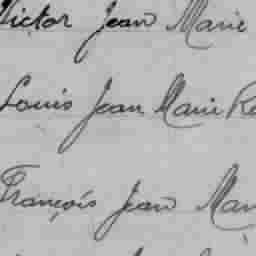 Victor Jean Marie
Louis Jean Marie Re
François Jean Mar